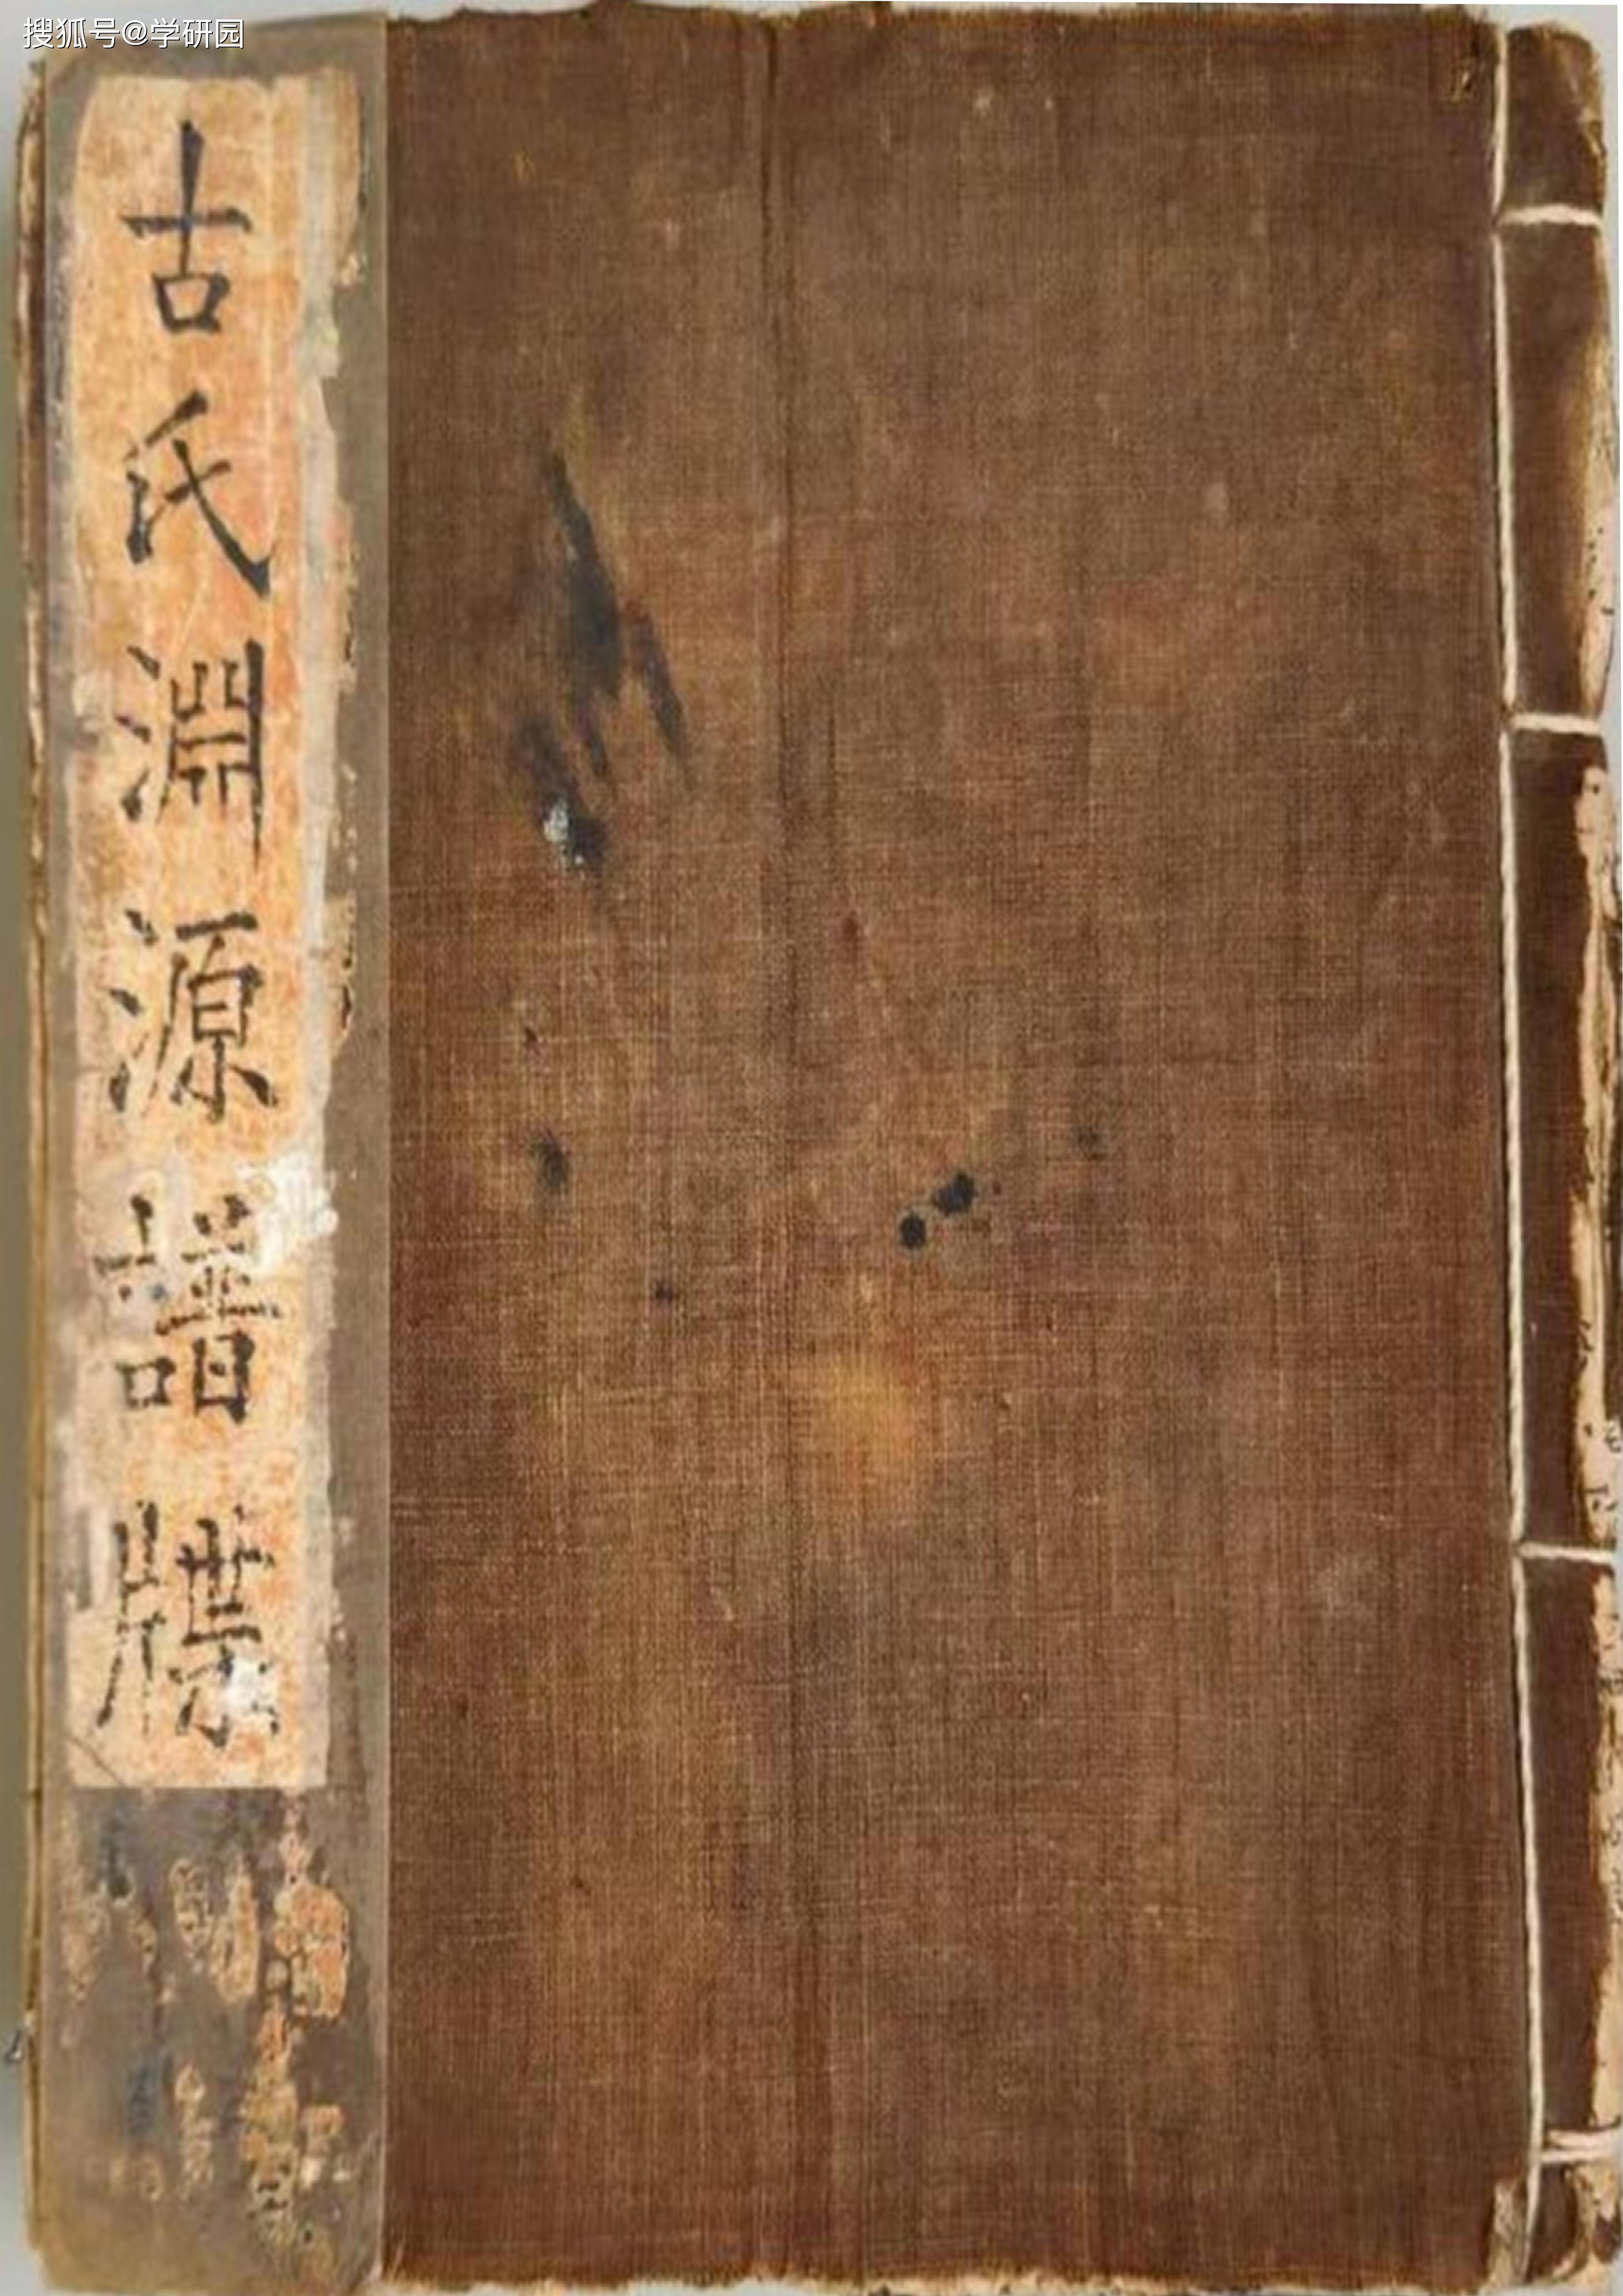 搜狐号@学研园
古氏淵源譜牒